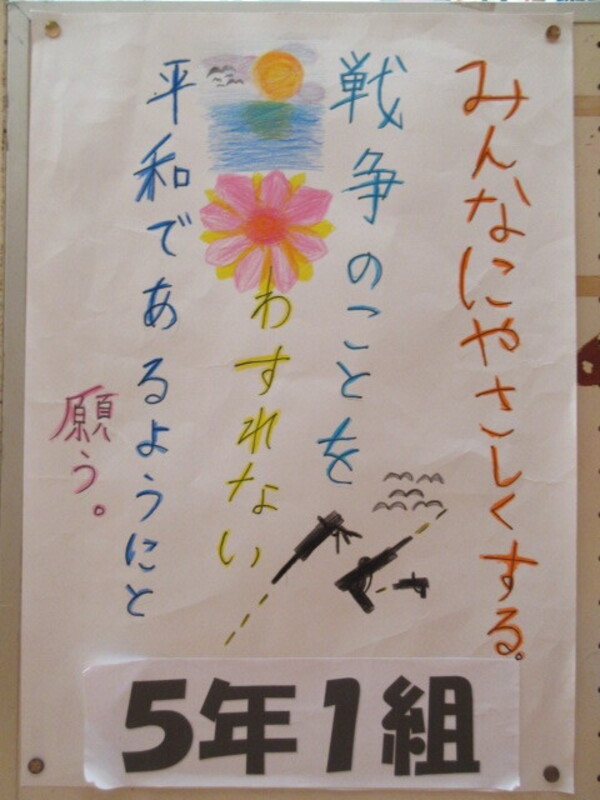 みんなにやさしくする。
戦争のことを
わすれない
平和であるようにと
願う。
5年1組